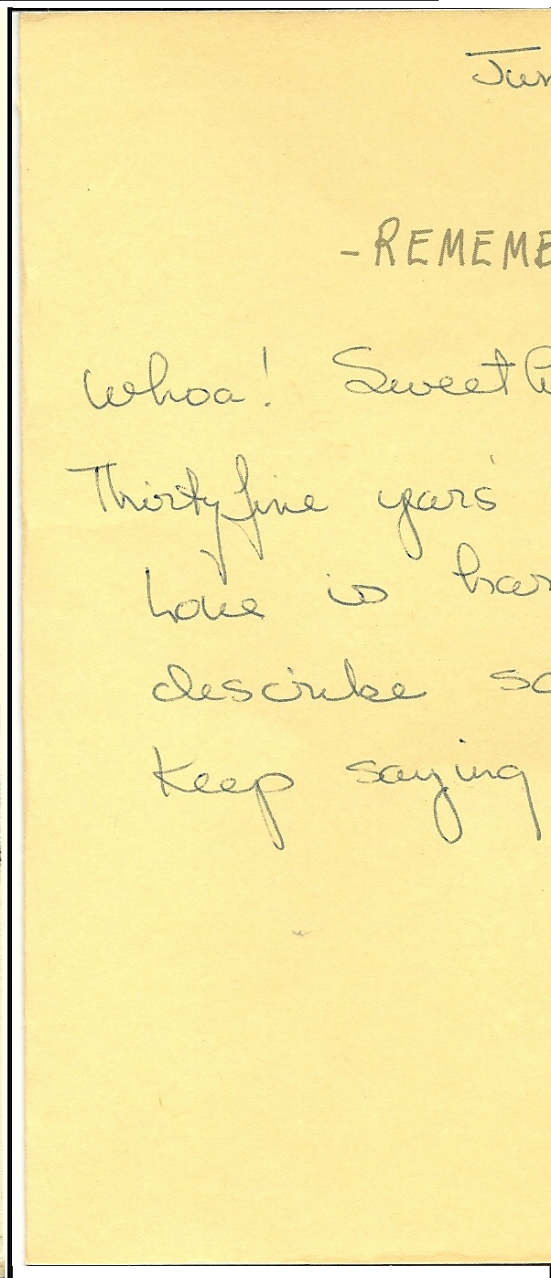 Jun
-REMEME
Whoa! Sweet
Thirty five years
Love is har
describe so
Keep saying